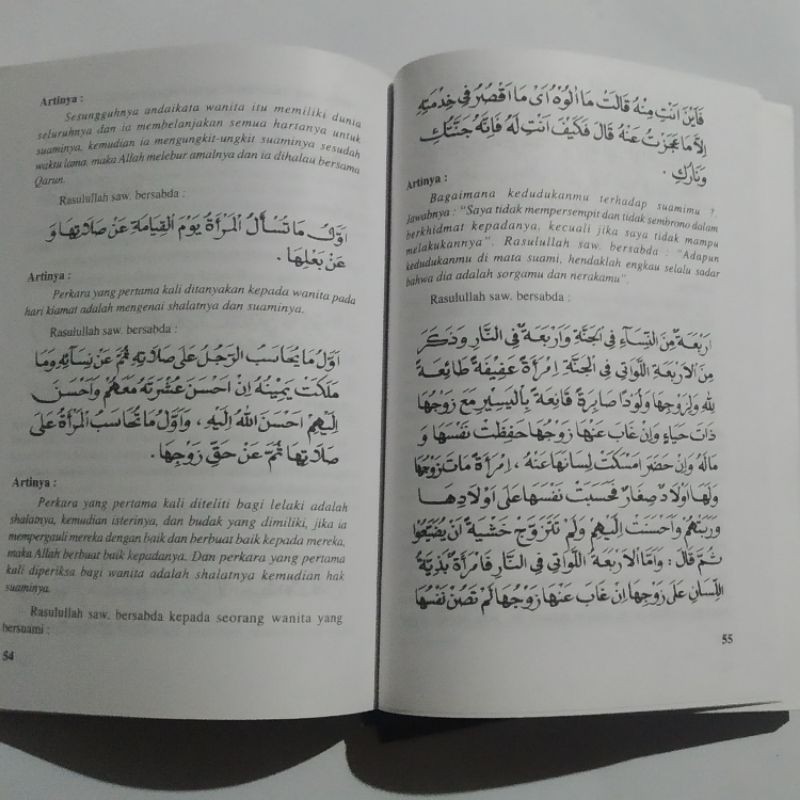 Artinya :
Sesungguhnya andaikata wanita itu memiliki dunia
seluruhnya dan ia membelanjakan semua hartanya untuk
suaminya, kemudian ia mengungkit-ungkit suaminya sesudah
waktu lama, maka Allah melebur amalnya dan ia dihalau bersama
Qarun.
Rasulullah saw. bersabda :
اَوَّلُ مَا تُسْأَلُ الْمَرْأَةُ يَوْمَ الْقِيَامَةِ عَنْ صَلَاتِهَا وَ
عَنْ بَعْلِهَا .
Artinya :
Perkara yang pertama kali ditanyakan kepada wanita pada
hari kiamat adalah mengenai shalatnya dan suaminya.
Rasulullah saw. bersabda :
اَوَّلُ مَا يُحَاسَبُ الرَّجُلُ عَلَى صَلَاتِهِ ثُمَّ عَنْ نِسَآئِهِ وَمَا
مَلَكَتْ يَمِيْنُهُ اِنْ اَحْسَنَ عِشْرَتَهُ مَعَهُمْ وَاَحْسَنَ
اِلَيْهِمْ اَحْسَنَ اللهُ اِلَيْهِ ، وَاَوَّلُ مَا تُحَاسَبُ الْمَرْأَةُ عَلَى
صَلَاتِهَا ثُمَّ عَنْ حَقِّ زَوْجِهَا .
Artinya :
Perkara yang pertama kali diteliti bagi lelaki adalah
shalatnya, kemudian isterinya, dan budak yang dimiliki, jika ia
mempergauli mereka dengan baik dan berbuat baik kepada mereka,
maka Allah berbuat baik kepadanya. Dan perkara yang pertama
kali diperiksa bagi wanita adalah shalatnya kemudian hak
suaminya.
Rasulullah saw. bersabda kepada seorang wanita yang
bersuami :
54
فَاَيْنَ اَنْتِ مِنْهُ قَالَتْ مَا اٰلُوْهُ اَىْ مَا اَقْصُرُ فِى خِدْمَتِهِ
اِلَّا مَا عَجَزْتُ عَنْهُ قَالَ فَكَيْفَ اَنْتِ لَهُ فَاِنَّهُ جَنَّتُكِ
وَنَارُكِ .
Artinya :
Bagaimana kedudukanmu terhadap suamimu ?.
Jawabnya : "Saya tidak mempersempit dan tidak sembrono dalam
berkhidmat kepadanya, kecuali jika saya tidak mampu
melakukannya". Rasulullah saw. bersabda : "Adapun
kedudukanmu di mata suami, hendaklah engkau selalu sadar
bahwa dia adalah sorgamu dan nerakamu".
Rasulullah saw. bersabda :
اَرْبَعَةٌ مِنَ النِّسَآءِ فِى الْجَنَّةِ وَاَرْبَعَةٌ فِى النَّارِ وَذَكَرَ
مِنَ الْاَرْبَعَةِ اللَّوَاتِى فِى الْجَنَّةِ اِمْرَأَةٌ عَفِيْفَةٌ طَائِعَةٌ
لِلّٰهِ وَلِزَوْجِهَا وَلُوْدًا صَابِرَةً قَانِعَةً بِالْيَسِيْرِ مَعَ زَوْجِهَا
ذَاتَ حَيَاءٍ وَاِنْ غَابَ عَنْهَا زَوْجُهَا حَفِظَتْ نَفْسَهَا وَ
مَالَهُ وَاِنْ حَضَرَ اَمْسَكَتْ لِسَانَهَا عَنْهُ ، اِمْرَأَةٌ مَاتَ زَوْجُهَا
وَلَهَا اَوْلَادٌ صِغَارٌ فَحَبَسَتْ نَفْسَهَا عَلَى اَوْلَادِهَا
وَرَبَّتْهُمْ وَاَحْسَنَتْ اِلَيْهِمْ وَلَمْ تَتَزَوَّجْ خَشْيَةَ اَنْ يُضَيَّعُوْا
ثُمَّ قَالَ : وَاَمَّا الْاَرْبَعَةُ اللَّوَاتِى فِى النَّارِ فَامْرَأَةٌ بَذِيَّةُ
اللِّسَانِ عَلَى زَوْجِهَا اِنْ غَابَ عَنْهَا زَوْجُهَا لَمْ تَصُنْ نَفْسَهَا
55